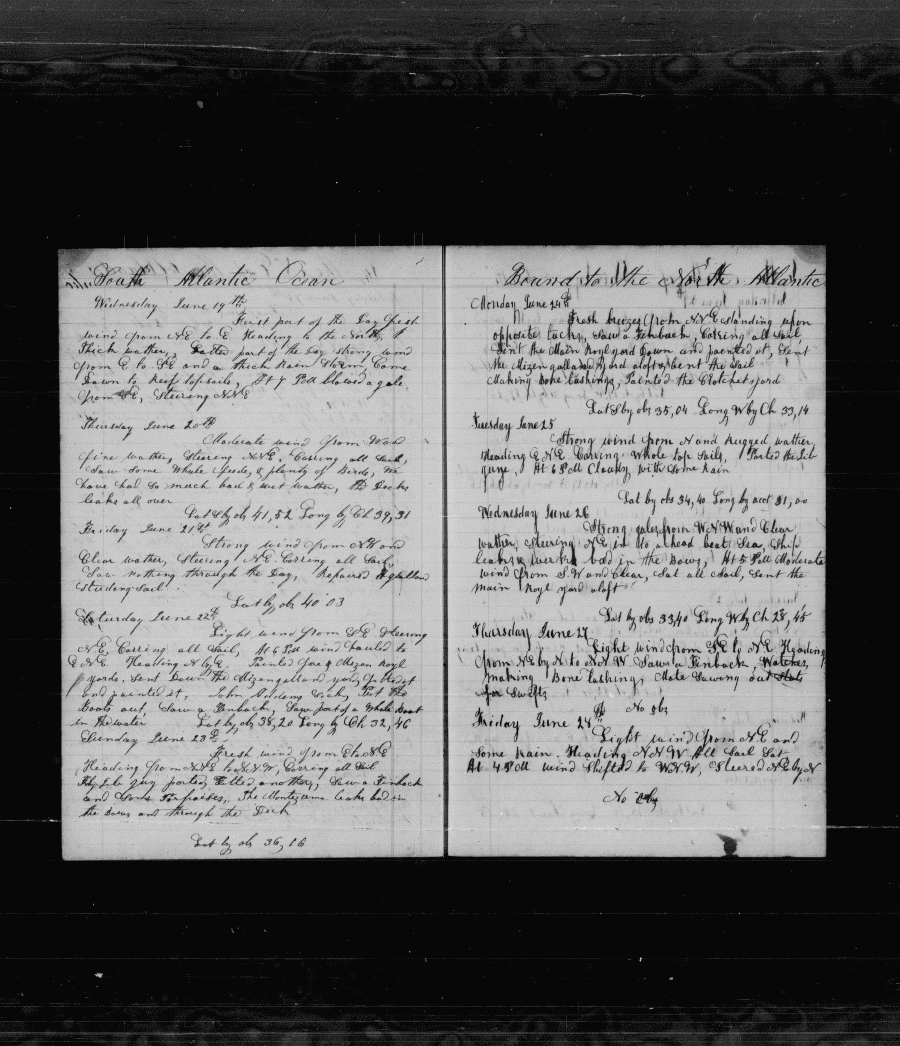 South Atlantic Ocean
Wednesday June 19th
First part of the Day fresh
wind from NE to E Heading to the North,
Thick wather, Latter part of the Day strong wind
from E to SE and a thick Rain Storm, Came
Down to Reef topsails, At 7 PM blowed a gale
from SE, Steering NNE
Thursday June 20th
Moderate wind from W and
fine wather, Steering NNE, Carring all Sail,
Saw Some Whale feede, & plenty of Birds, We
have had so much bad & wet wather, the Decks
leaks all over
Lat S by obs 41,52 Long by Ch 39,31
Friday June 21st
Strong wind from NW and
Clear wather, Steering NE. Carring all Sail,
Saw nothing through the Day, Repaired
Studing Sail
Lat by obs 40 03
Saturday June 22d
Light wind from SE Steering
NE, Carring all Sail, At 6 PM wind hauled to
ENE Heading N by E. Painted fore & Mizen Royl
yards, Sent Down the Mizen gallant yard
and painted it, John Sick, Put the
Boats out, Saw a Finback, Saw part of a Whale Boat
in the water Lat by obs 38,20 Long by Ch 32,46
Sunday June 23d
Fresh wind from E by NE
Heading from NNE to NNW, Carring all Sail
The Jib guy parted, fitted another, Saw a Finback
and Some Porpoises, The Montezuma leaks bad in
the Bows and through the Deck
Lat by obs 36,16
Bound to the North Atlantic
Monday June 24th
Fresh breezes from NNE standing upon
opposite tacks, Saw a Finback, Carring all Sail,
Sent the Main Royl yard Down and painted it, Sent
the Mizen gallant yard aloft & bent the Sail
Making Bone lashings, Painted the
Lat S by obs 35,04 Long W by Ch 33,14
Tuesday June 25
Strong wind from N and Rugged wather,
Heading ENE Carring Whole top Sails, Parted the Jib
guye, At 6 PM Cloudy with Some Rain
Lat by obs 34,40 Long by acct 31,00
Wednesday June 26
Strong gales from WNW and Clear
wather, Steering NE in to a head beat Sea, Ship
leaks & works bad in the Bows, At 5 PM Moderate
wind from SW and Clear, Sat all Sail, Sent the
main Royl yard aloft
Lat by obs 33,40 Long W by Ch 28,45
Thursday June 27
Light wind from SE to NE Heading
from NE by N to NNW Saw a Finback,
making Bone lashing, Mate Sawing out Slats
for Swifts
No obs
Friday June 28th
Light wind from NE and
Some Rain. Heading NNW All Sail Sat
At 4 PM wind Shifted to WNW, Steered NE by N
No obs